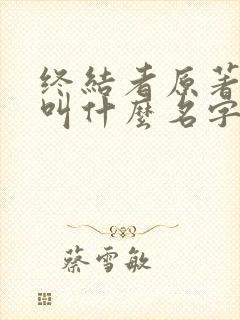 终結者原著
叫什麼名字
蔡雪敏